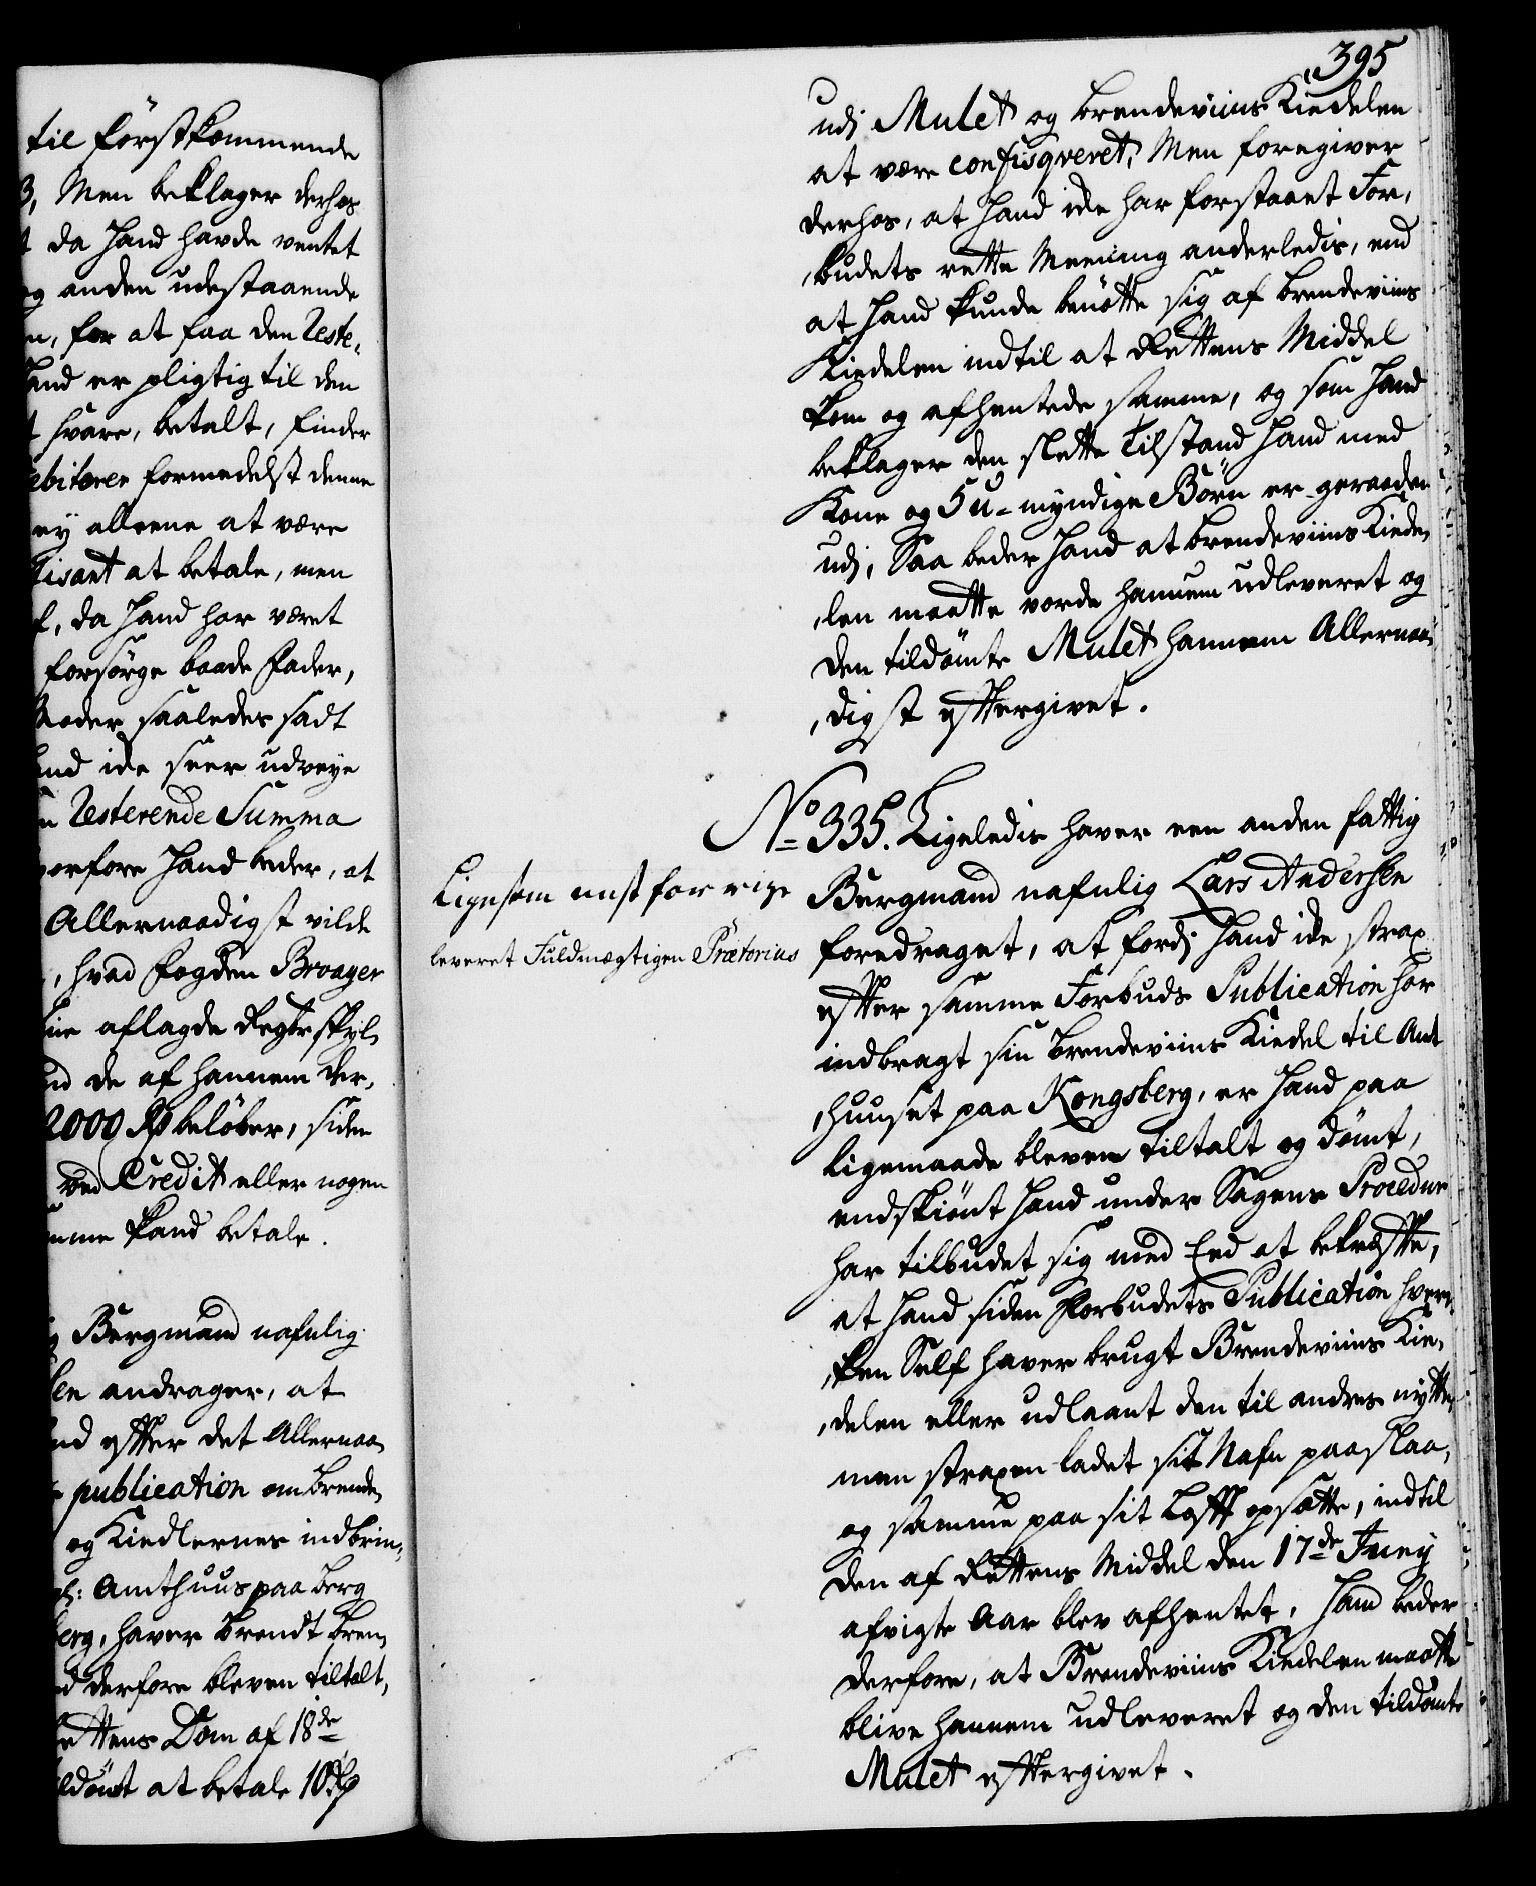 til förstkommende
3, Men beklager derhos
da Hand havde ventet
og anden udestaaende
n, for at faa den Reste,
Hand er pligtig til den
t svare, betalt, finder
ebitorer formedelst denne
ey alleene at være
tisant at betale, men
f, da Hand har været
forsörge baade Fader,
Moder saaledes sadt
and icke seer udveye
n Resterende Summa
vorfore Hand beder, at
Allernaadigst vilde
, hvad Fogden Broager
sine aflagde Regnskb
nd de af hannem der,
2000 Rd beløber, siden
ved Credit eller nogen
amme kand betale.
g Bergmand nafnlig
len andrager, at
nd efter det Allernaa,
publication om brende,
og Kiedlernes indbrin,
gl: Amthuus paa berg
berg, haver brendt bren,
d derfore bleven tiltalt,
Rettens Dom af 18de
ldömt at betale 10 Rd
395
udj Mulct og brendeviins Kiedelen
at være confisqveret, Men foregiver
derhos, at Hand icke har forstaaet For,
,budets rette Meening anderledis, end
at Hand kunde benötte sig af brendeviins
Kiedelen indtil at Rettens Middel
kom og afhentede samme, og som Hand
beklager den slette Tilstand Hand med
Kone og 5 u-myndige Börn er geraaden
udj, Saa beder Hand at brendeviins Kiede,
,len maatte vorde hannem udleveret og
den tildömte Mulct hannem Allernaa,
,digst eftergivet.
No 335. Ligeledis haver een anden fattig
Bergmand nafnlig Lars Andersen
foredraget, at fordj Hand icke strax
efter samme Forbuds Publication har
indbragt sin brendeviins Kiedel til Amt
,huuset paa Kongsberg, er Hand paa
ligemaade bleven tiltalt og dömt,
endskiönt Hand under Sagens Procedur
har tilbudet sig med Eed at bekræfte,
at Hand siden Forbudets Publication hver,
,ken Self haver brugt Brendeviins Kie,
,delen eller udlaant den til andres nytte,
men straxen ladet sit Nafn paaslaa,
og samme paa sit Loft opsætte, indtil
den af Rettens Middel den 17de Juny
afvigte Aar blev afhentet, Hand beder
derfore, at Brendeviins Kiedelen maatte
blive hannem udleveret og den tildömte
Mulct eftergivet.
Ligesom næst forrige
leveret Fuldmægtigen Prætorius